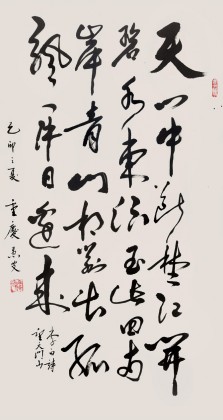 天門中斷楚江開
碧水東流至此回两
岸青山相對出孤
帆一片日邊來
李白詩
望天门山
己卯之夏 重慶